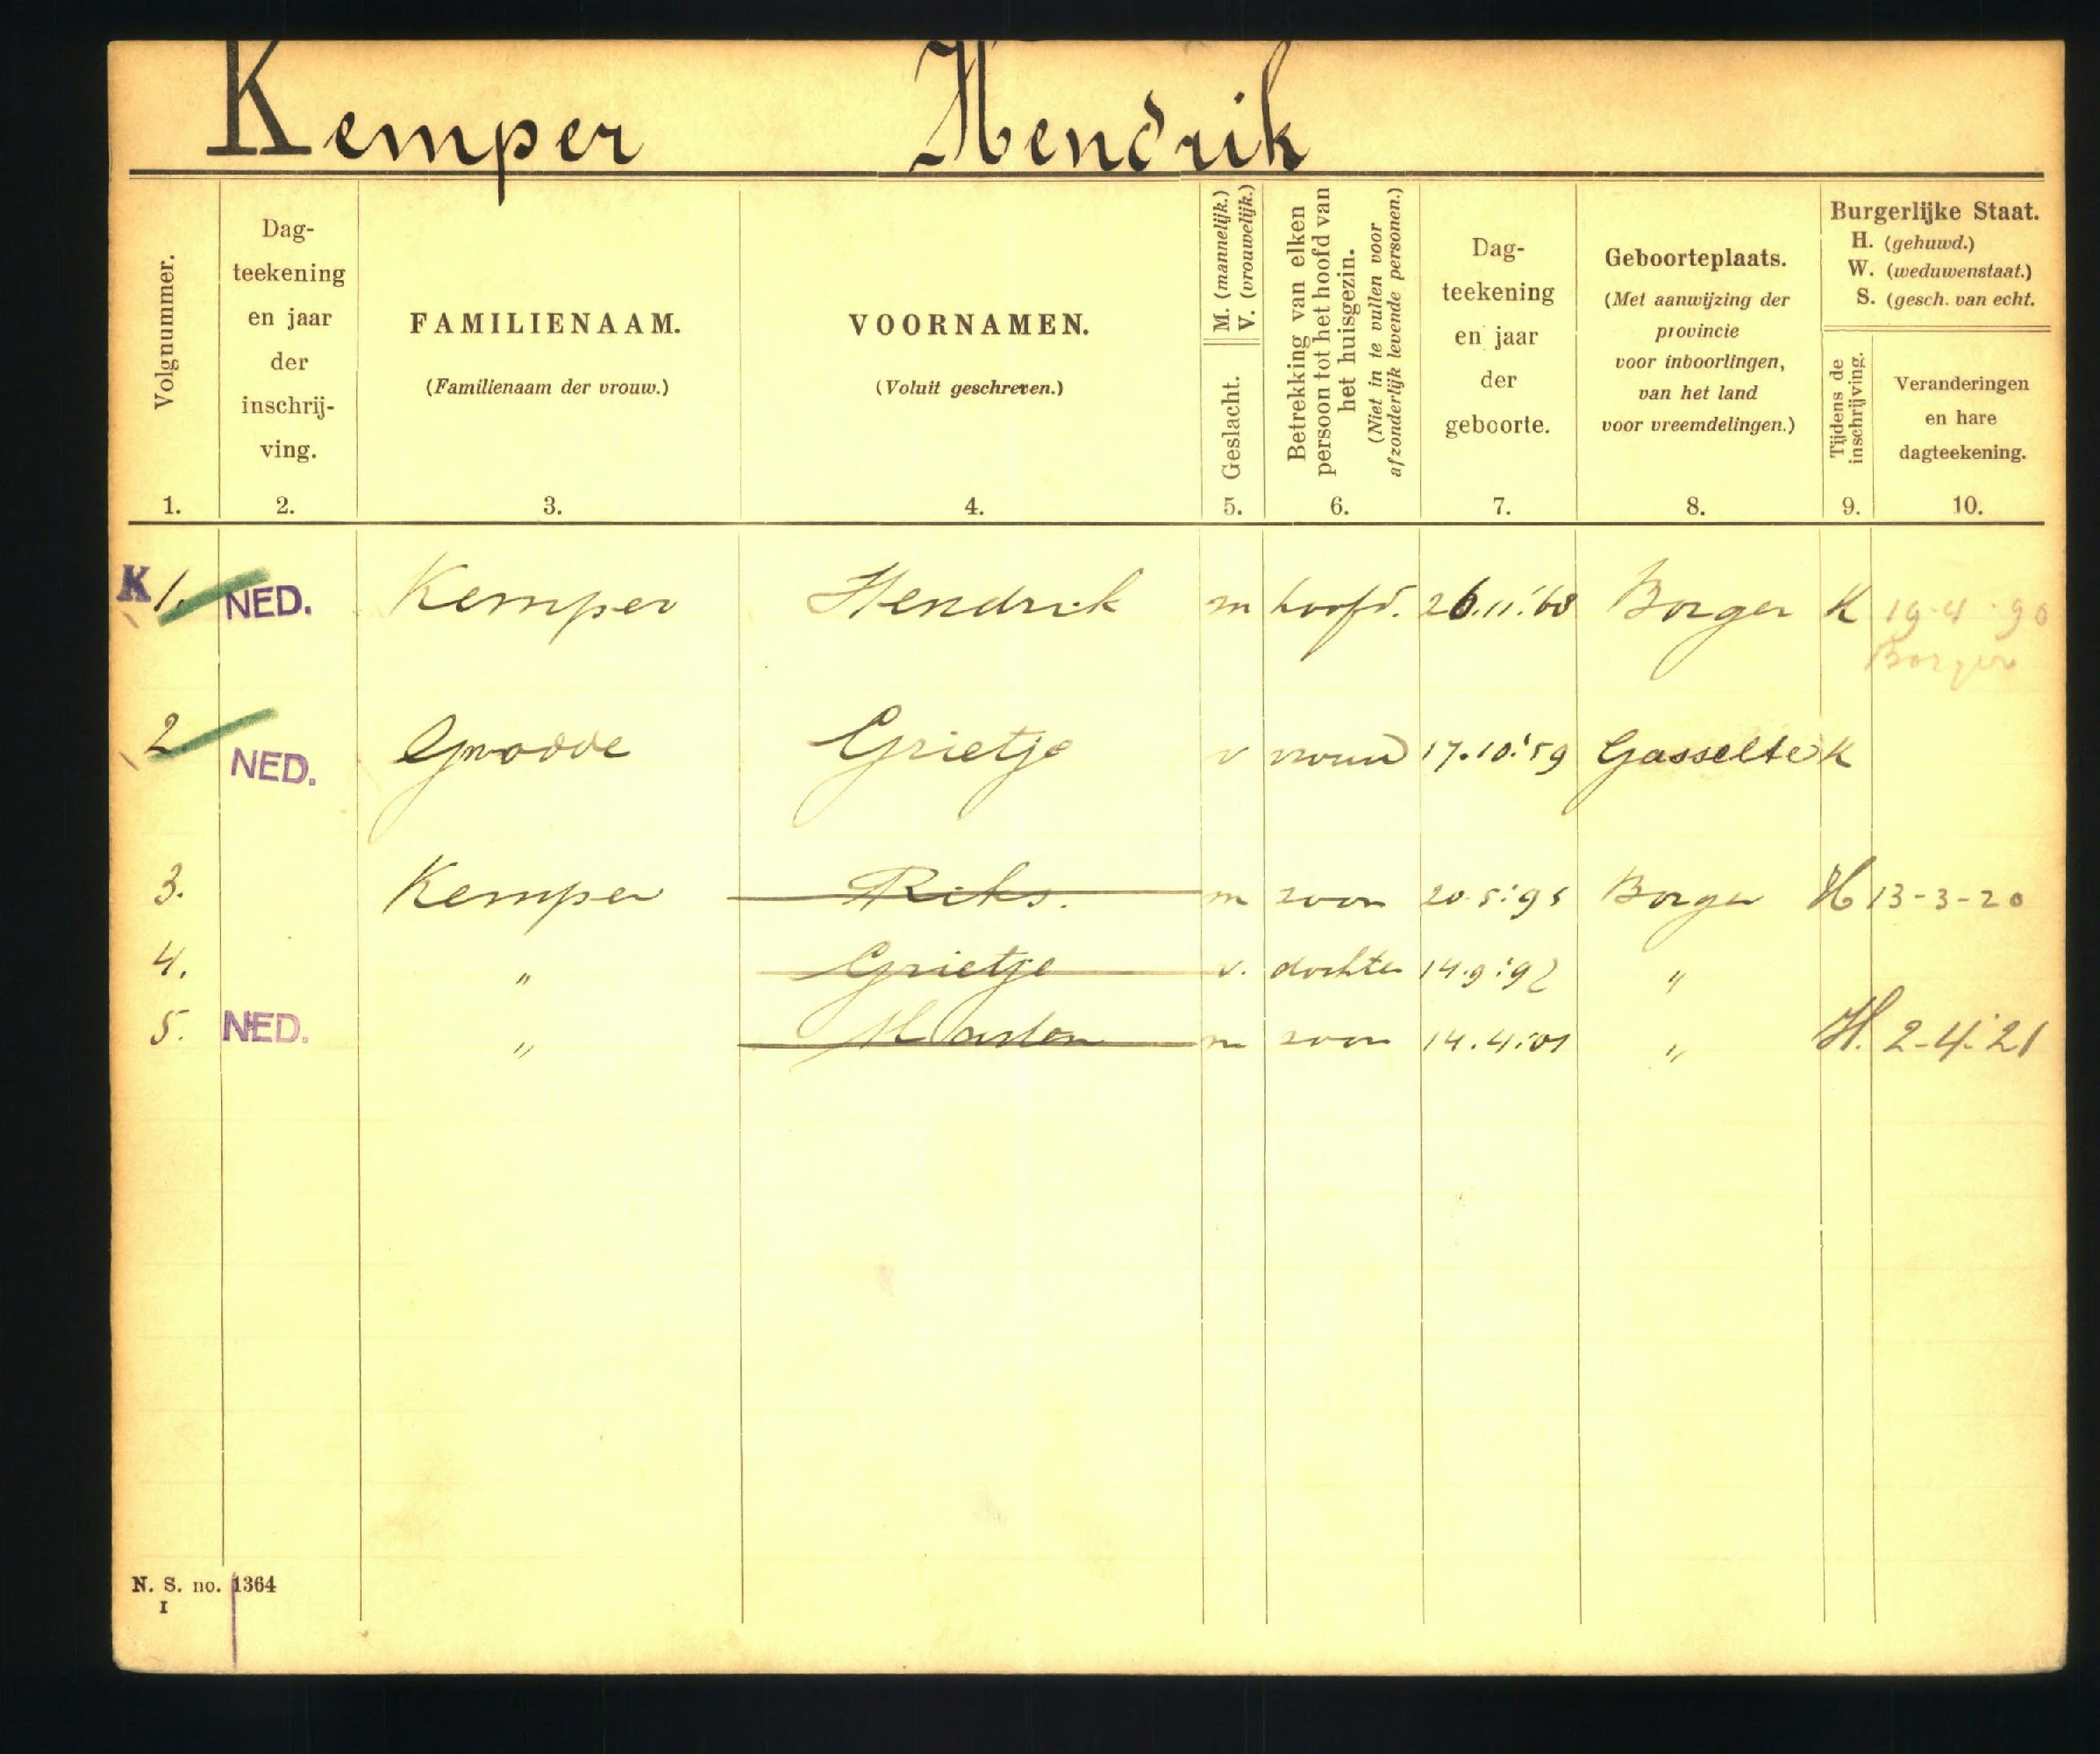 Kemper Hendrik
Volgnummer.
1.
Dag-
teekening
en jaar
der
inschrij-
ving.
2.
FAMILIENAAM.
(Familienaam der vrouw.)
3.
VOORNAMEN.
(Voluit geschreven.)
4.
M. (mannelijk.)
V. (vrouwelijk.)
Geslacht.
5.
Betrekking van elken
persoon tot het hoofd van
het huisgezin.
(Niet in te vullen voor
afzonderlijk levende personen.)
6.
Dag-
teekening
en jaar
der
geboorte.
7.
Geboorteplaats.
(Met aanwijzing der
provincie
voor inboorlingen,
van het land
voor vreemdelingen.)
8.
Burgerlijke Staat.
H. (gehuwd.)
W. (weduwenstaat.)
S. (gesch. van echt.
Tijdens de
inschrijving.
9.
Veranderingen
en hare
dagteekening.
10.
K 1. NED. Kemper Hendrik m hoofd. 26.11.'68 Borger H 19-4-90
Borger
2 NED. Grietje v vrouw 17.10.'59 Gasselte H
3. Kemper m zoon 20.5.'95 Borger H 13-3-20
4. " Grietje v. dochter 14.9.'97 "
5. NED. " m zoon 14.4.'01 " H. 2-4-'21
N. S. no. 1364
I